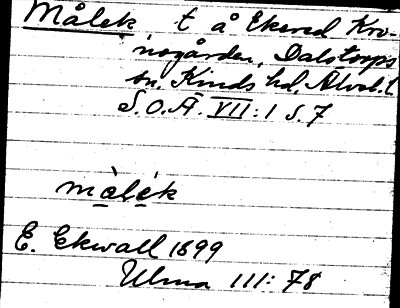 Målek t å Ekered Kro-
nogården, Dalstorps
sn, Kinds hd, Älvsb. l.
S.O.Ä. VII: 1 s. 7
màlék
E. Ekwall 1899
Ulma 111: 78